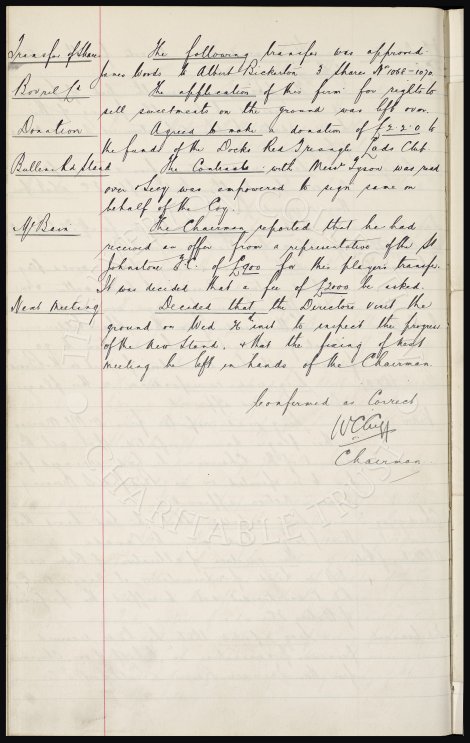 Transfer of Shares The following transfer was approved.
James Woods to Albert Bickerton 3 shares Nos 1068-1070.
Bovril Ld The application of this firm for rights to
sell sweetmeats on the ground was left over.
Donation Agreed to make a donation of £2.2.0 to
the funds of the Docks Red Triangle Lads Club
Bullens Rd Stand The Contracts with Messrs Tyson was read
over & Secy was empowered to sign same on
behalf of the Coy.
McBain The Chairman reported that he had
received an offer from a representative of the St
Johnstone F.C. of £900 for this players transfer.
It was decided that a fee of £2000 be asked.
Next Meeting Decided that the Directors visit the
ground on Wed inst to inspect the progress
of the New Stand, & that the fixing of next
meeting be left in hands of the Chairman.
Confirmed as Correct
W C Cuff
Chairman.
CHARITABLE TRUST